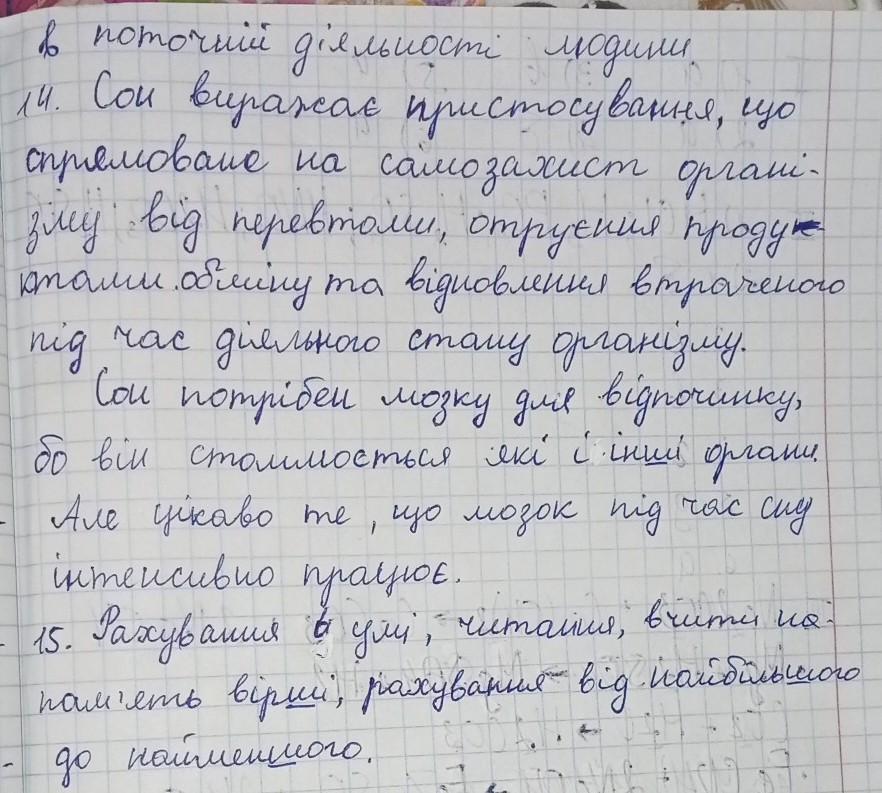 в поточній діяльності людини.
14. Сон виражає пристосування, що
спрямоване на самозахист органі-
зму від перевтоми, отруєння проду
ктами обміну та відновлення втраченого
під час діяльного стану організму.
Сон потрібен мозку для відпочинку,
бо він стомлюється які і інші органи.
Але цікаво те, що мозок під час сну
інтенсивно працює.
15. Рахування в умі, читання, вчити на-
пам'ять вірші, рахування від найбільшого
до найменшого.